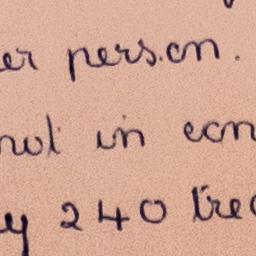 er person.
not in con
y 240 tre